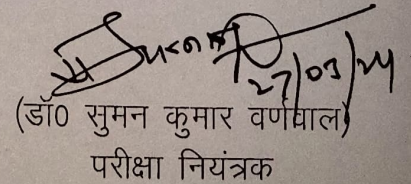 27/03/24
(डॉ0 सुमन कुमार वर्णवाल)
परीक्षा नियंत्रक